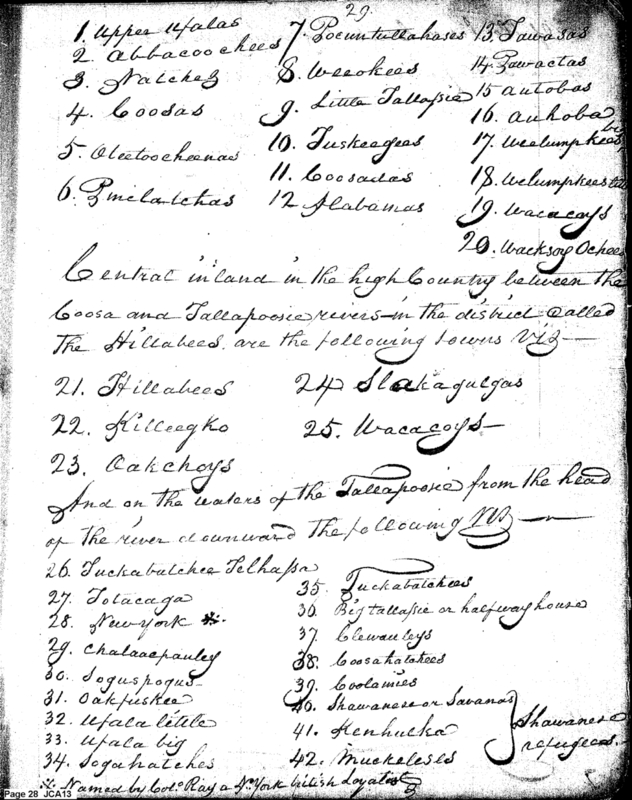 29.
1. Upper Ufalas
2. Abbacoochees
3. Natchez
4. Coosas
5. Oteetoocheenas
6. Pinclatchas
7. Pocuntullahases
8. Weeokees
9. Little Tallassie
10. Tuskeegees
11. Coosadas
12 Alabamas
13. Tawasas
14 Pawactas
15 Autobas
16. Auhoba
17. Weelumpkees big
18. Welumpkees
19. Wacacoys
20. Wacksoy Ochees
Central inland in the high Country between the
Coosa and Tallapoosie rivers in the district Called
The Hillabees, are the following towns Viz—
21. Hillabees
22. Killeegko
23. Oakchoys
24 Slakagulgas
25. Wacacoys—
And on the waters of the Tallapoosie from the head
of the river downward the following Viz——
26. Tuckabatchee Telhassa
27. Totacaga
28. New-york ※.
29. Chalaacpauley
30. Soguspogus
31. Oakfuskee
32 Ufala little
33. Ufala big
34. Sogahatches
35. Tuckabatchees
36. Big tallassie or halfway house
37. Clewauleys
38. Coosahatchees
39. Coolamies
40. Shawanese or Savanas
41. Kenhulka
42. Muckeleses
Shawanese
refugees.
※. Named by Colo. Ray a N. York british Loyalest
Page 28 JCA13